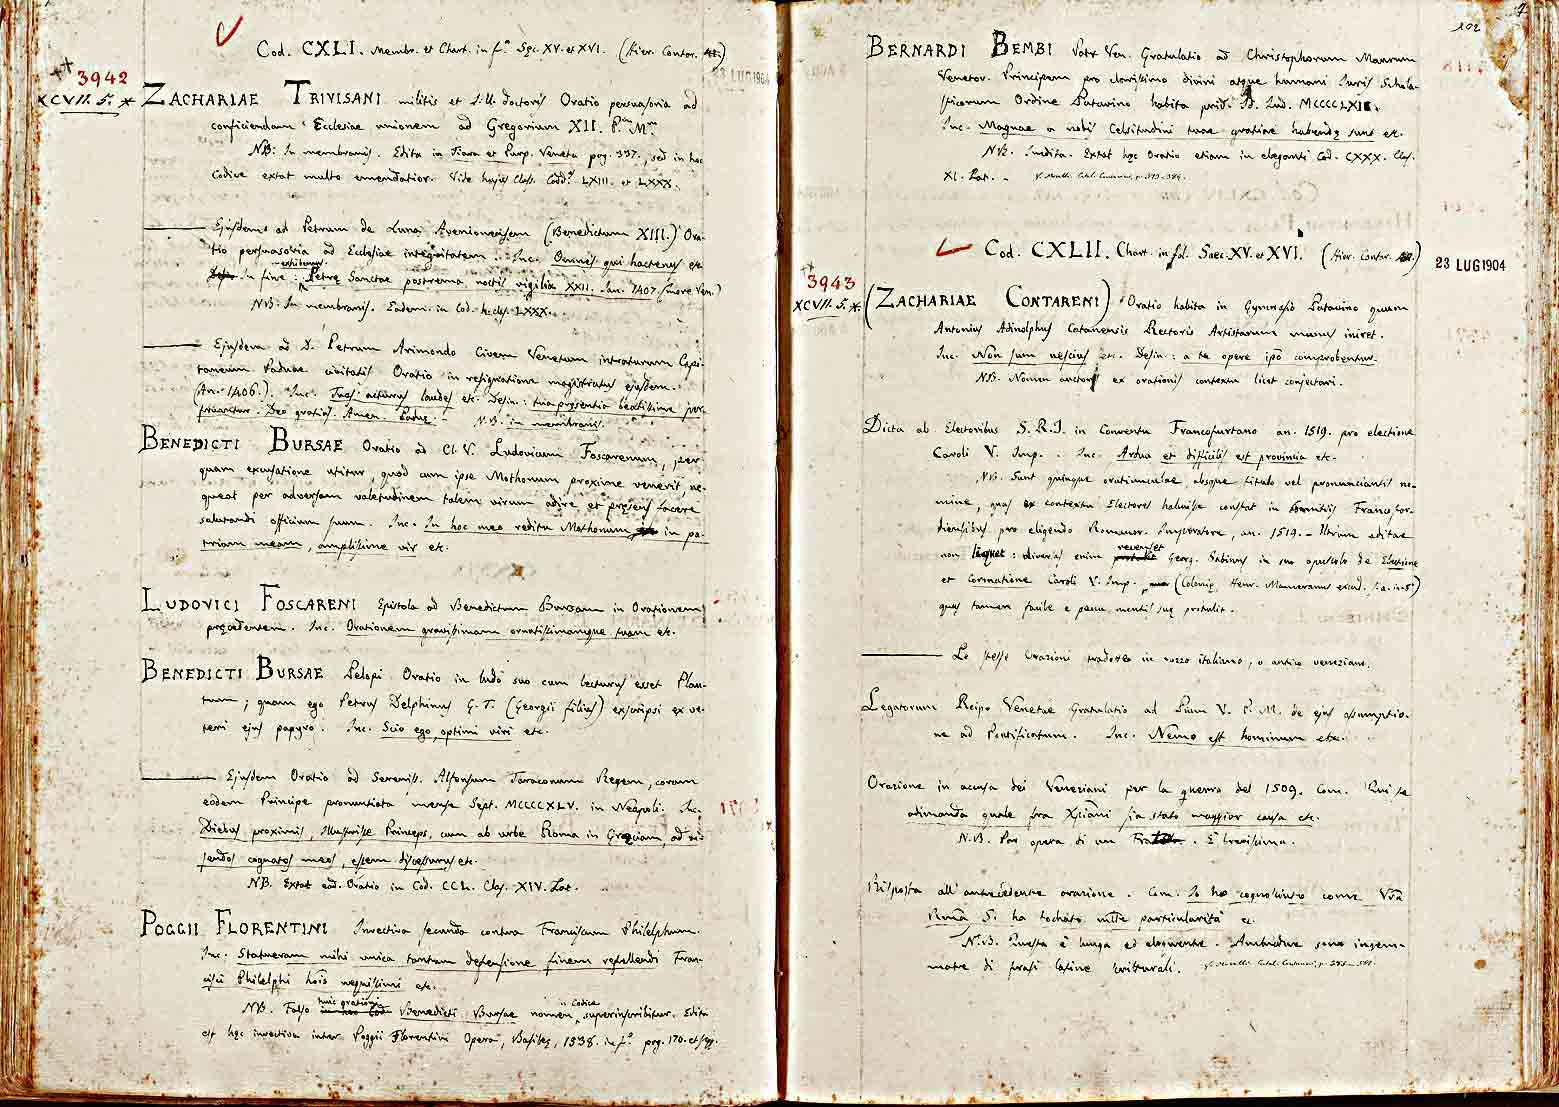 Cod. CXLI. Membr. et Chart. in f.º Sec. XV. et XVI. (Hier. Contar.
23 LUG 1904
3942
XCVII. 5. *
ZACHARIAE TRIVISANI militis et J.U. doctoris Oratio persuasoria ad
conficiendam Ecclesiae unionem ad Gregorium XII. P. M.
NB: In membranis. Edita in Tiara et Purp. Veneta pag. 337., sed in hoc
Codice extat multo emendatior. Vide hujus Class. Codd. LXIII. et LXXX.
Ejusdem ad Petrum de Luna Avenionensem (Benedictum XIII.) Ora-
tio persuasoria ad Ecclesiae integritatem. Inc. Omnes qui hactenus etc
in fine: exhibemus Petre Sanctae postrema noctis vigilia XXII. Jan. 1407 (more Ven.)
NB. In membranis. Eadem in Cod. h. cl. LXXX.
Ejusdem ad D. Petrum Arimondo Civem Venetum intraturum Capi-
taneum Paduae civitatis Oratio in resignatione magistratus ejusdem.
(An. 1406.). Inc. Tuas acturus laudes etc. Desin.: tua presentia beatissime per-
fruantur. Deo gratias. Amen. Padue. N.B. in membranis.
BENEDICTI BURSAE Oratio ad Cl. V. Ludovicum Foscarenum, per
quam excusatione utitur, quod cum ipse Mothonum proxime venerit, ne-
queat per adversam valetudinem talem virum adire et presens facere
salutandi officium suum. Inc. In hoc meo reditu Mothonum in pa-
triam meam, amplissime vir etc.
LUDOVICI FOSCARENI Epistola ad Benedictum Bursam in Orationem
precedentem. Inc. Orationem gravissimam ornatissimamque tuam etc.
BENEDICTI BURSAE Pelopi Oratio in ludo suo cum lecturus esset Plau-
tum; quam ego Petrus Delphinus G. F. (Georgii filius) exscripsi ex ve-
teri ejus papyro. Inc. Scio ego, optimi viri etc.
Ejusdem Oratio ad Sereniss. Alfonsum Taraconum Regem, coram
eodem Principe pronuntiata mense Sept. MCCCCXLV. in Neapoli. Inc.
Diebus proximis, Illustrisse Princeps, cum ab urbe Roma in Greciam, ad vi-
sendos cognatos meos, essem discessurus etc.
NB. Extat ead. Oratio in Cod. CCL. Clas. XIV. Lat.
POGGII FLORENTINI Invectiva secunda contra Franciscum Philelphum.
Inc. Statueram mihi unica tantum defensione finem refellendi Fran-
cisci Philelphi hois nequissimi etc.
NB. Falso huic orationi Benedicti Bursae nomen in Codice superinscribitur. Edita
est hec invectiva inter Poggii Florentini Opera, Basilee, 1538. in f.º pag. 170. et sqq.
102
BERNARDI BEMBI Patr. Ven. Gratulatio ad Christophorum Maurum
Venetor. Principem pro clarissimo divini atque humani Juris Schola-
sticorum Ordine Patavino habita prid. Id. Jud. MCCCCLXII.
Inc. Magnae a nobis Celsitudini tuae gratiae habende sunt etc.
NB. Inedita. Extat hec Oratio etiam in eleganti Cod. CXXX. Clas.
XI. Lat.
Cod. CXLII. Chart. in fol. Saec. XV. et XVI. (Hier. Contar.
23 LUG 1904
3943
XCVII. 5. *
(ZACHARIAE CONTARENI) Oratio habita in Gymnasio Patavino quum
Antonius Adinolphus Catanensis Rectoris Artistarum munus iniret.
Inc. Non sum nescius etc. Desin: a te opere ipo comprobentur
NB. Nomen auctoris ex orationis contextu licet conjectari.
Dicta ab Electoribus S. R. I. in Conventu Francofurtano an. 1519. pro electione
Caroli V. Imp. . Inc. Ardua et difficilis est provincia etc.
NB. Sunt quinque oratiunculae, absque titulo vel pronunciantis no-
mine, quas ex contextu Electores habuisse constat in comitiis Francfor-
diensibus, pro eligendo Romanor. Imperatore, an. 1519. - Utrum editae
non liquet: diversas enim recenset Georg. Sabinus in suo opusculo de Electione
et Coronatione Caroli V. Imp. (Colonie, Henr. Mameranus excud. s.a. in-8º)
quas tamen facile e penu mentis sue protulit.
Le stesse Orazioni tradotte in rozzo italiano, o antico veneziano.
Legatorum Reipo Venetae Gratulatio ad Pium V. P. M. de ejus assumptio-
ne ad Pontificatum. Inc. Nemo est hominum etc.
Orazione in accusa dei Veneziani per la guerra del 1509. Com. Qui se
adimanda quale fra Xpiani sia stato maggior causa etc.
N.B. Par opera di un . È brevissima.
Risposta all' antecedente orazione. Com. Io ho cognosciuto come Vra
Suma S. ha tochato nelle particularità ec.
N.B. Questa è lunga ed eloquente. Ambidue sono ingem-
mate di frasi latine scritturali.